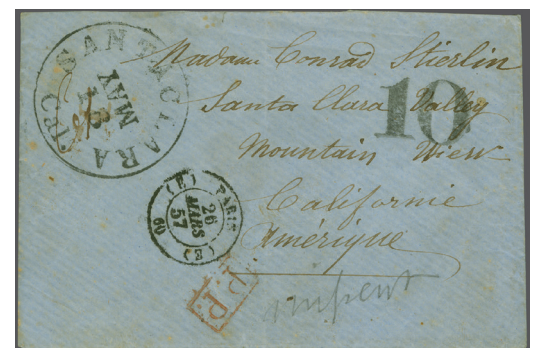 SANTA CLARA
MAY
18
10
Madame Conrad Stierlin
Santa Clara Valley
Mountain View
Californie
Amérique
PARIS
(E)
26
MARS
57
(E)
60
P.P.